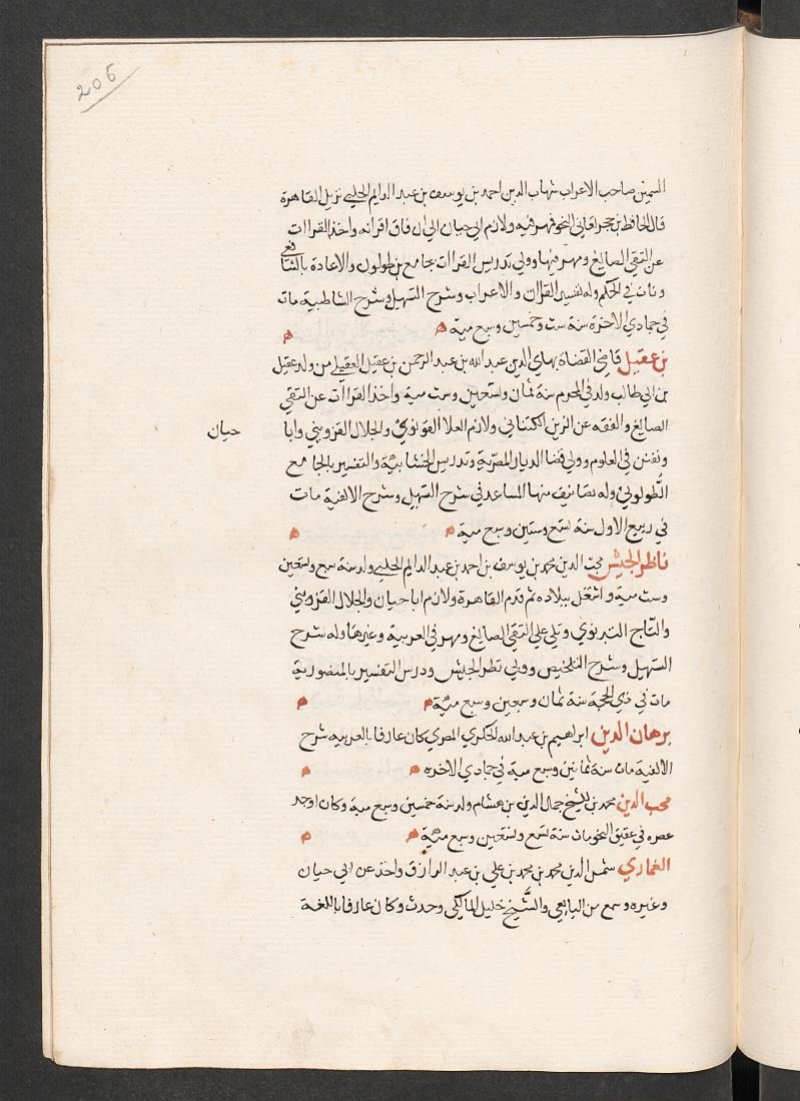 206
السمين صاحب الاعراب شهاب الدين احمد بن يوسف بن عبد الدايم الحلبي نزيل القاهرة
قال الحافظ بن حجر تعاني النحو فمهر فيه ولازم ابي حيان الي ان فاق اقرانه واخذ القراات
عن التقي الصايغ ومهر فيها وولي تدريس القراات بجامع بن طولون والاعادة بالشافعي
وناب في الحكم وله تفسير القران والاعراب وشرح التسهيل وشرح الشاطبية مات
في جمادي الاخرة سنة ست وخمسين وسبع مية ه ه
بن عقيل قاضي القضاة بهاي الدين عبد الله بن عبد الرحمن بن عقيل العقيلي من ولد عقيل
بن ابي طالب ولد في المحرم سنة ثمان وتسعين وست مية واخذ القراات عن التقي
الصايغ والفقه عن الزين الكتناني ولازم العلا القونوي والجلال القزويني وابا حيان
وتفنن في العلوم وولي قضا الديار المصرية وتدريس الخشابية والتفسير بالجامع
الطولوني وله تصانيف منها المساعد في شرح التسهيل وشرح الالفية مات
في ربيع الاول سنة تسع وستين وسبع مية ه ه
ناظر الجيش محب الدين محمد بن يوسف بن احمد بن عبد الدايم الحلبي ولد سنة سبع وتسعين
وست مية واشتغل ببلاده ثم قدم القاهرة ولازم ابا حيان والجلال القزويني
والتاج التبريزي وتلي علي التقي الصايغ ومهر في العربية وغيرها وله شرح
التسهيل وشرح التلخيص وولي نظر الجيش ودرس التفسير بالمنصورية
مات في ذي الحجة سنة ثمان وسبعين وسبع مئية ه ه
برهان الدين ابراهيم بن عبد الله الحكري المصري كان عارفا بالعربيه شرح
الالفية مات سنة ثمانين وسبع مية في جمادي الاخره ه ه
محب الدين محمد بن الشيخ جمال الدين بن هشام ولد سنة خمسين وسبع مية وكان اوحد
عصره في تحقيق النحو مات سنة تسع وتسعين وسبع مئية ه ه
الغماري شمس الدين محمد بن محمد بن علي بن عبد الرازق واخذ عن ابي حيان
وغيره وسمع من اليافعي والشيخ خليل المالكي وحدث وكان عارفا باللغة